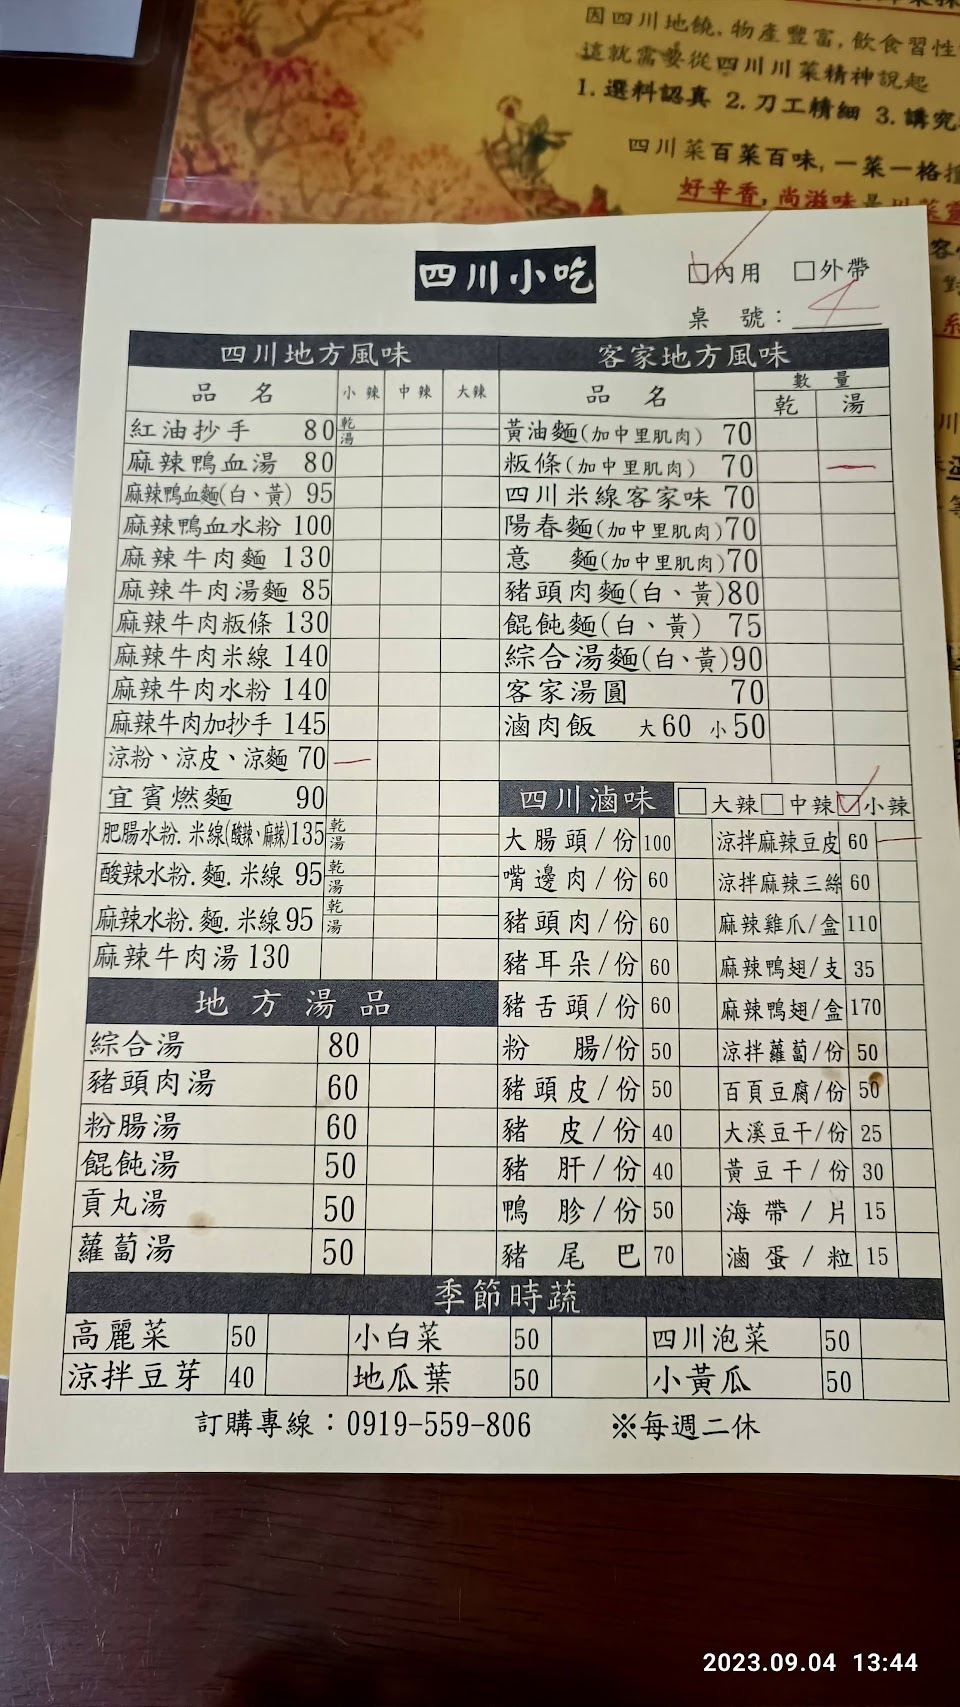 因四川地饒,物產豐富,飲食習性
這就需要從四川川菜精神說起
1.選料認真 2.刀工精細 3.講究
四川菜百菜百味,一菜一格
好辛香,尚滋味是川菜
四川小吃
內用 外帶
桌號: 4
四川地方風味
品名 小辣 中辣 大辣
紅油抄手 80 乾 湯
麻辣鴨血湯 80
麻辣鴨血麵(白、黃) 95
麻辣鴨血水粉 100
麻辣牛肉麵 130
麻辣牛肉湯麵 85
麻辣牛肉粄條 130
麻辣牛肉米線 140
麻辣牛肉水粉 140
麻辣牛肉加抄手 145
涼粉、涼皮、涼麵 70 一
宜賓燃麵 90
肥腸水粉.米線(酸辣、麻辣)135 乾 湯
酸辣水粉.麵.米線 95 乾 湯
麻辣水粉.麵.米線 95 乾 湯
麻辣牛肉湯 130
地方湯品
綜合湯 80
豬頭肉湯 60
粉腸湯 60
餛飩湯 50
貢丸湯 50
蘿蔔湯 50
客家地方風味
品名 數量
乾 湯
黃油麵(加中里肌肉) 70
粄條(加中里肌肉) 70 一
四川米線客家味 70
陽春麵(加中里肌肉)70
意麵(加中里肌肉)70
豬頭肉麵(白、黃)80
餛飩麵(白、黃) 75
綜合湯麵(白、黃)90
客家湯圓 70
滷肉飯 大60 小50
四川滷味 大辣 中辣 小辣
大腸頭/份 100 涼拌麻辣豆皮 60 一
嘴邊肉/份 60 涼拌麻辣三絲 60
豬頭肉/份 60 麻辣雞爪/盒 110
豬耳朵/份 60 麻辣鴨翅/支 35
豬舌頭/份 60 麻辣鴨翅/盒 170
粉腸/份 50 涼拌蘿蔔/份 50
豬頭皮/份 50 百頁豆腐/份 50
豬皮/份 40 大溪豆干/份 25
豬肝/份 40 黃豆干/份 30
鴨胗/份 50 海帶/片 15
豬尾巴 70 滷蛋/粒 15
季節時蔬
高麗菜 50 小白菜 50 四川泡菜 50
涼拌豆芽 40 地瓜葉 50 小黃瓜 50
訂購專線:0919-559-806 ※每週二休
2023.09.04 13:44